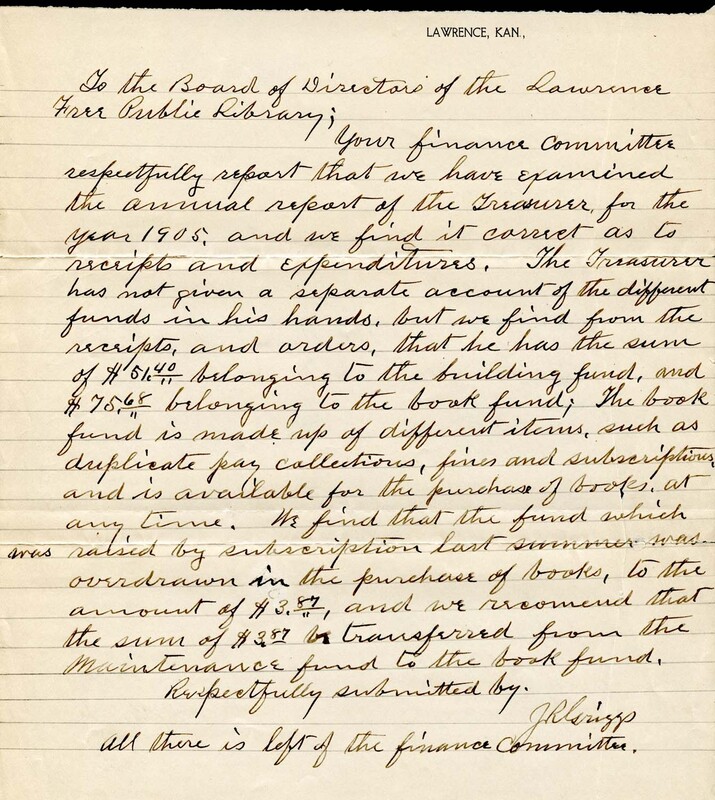 LAWRENCE, KAN.,
To the Board of Directors of the Lawrence
Free Public Library;
Your finance committee
respectfully report that we have examined
the annual report of the Treasurer, for the
year 1905, and we find it correct as to
receipts and expenditures. The Treasurer
has not given a separate account of the different
funds in his hands, but we find from the
receipts, and orders, that he has the sum
of $51.40 belonging to the building fund, and
$75.68 belonging to the book fund; The book
fund is made up of different items, such as
duplicate pay collections, fines and subscriptions,
and is available for the purchase of books, at
any time. We find that the fund which
was raised by subscription last summer was
overdrawn in the purchase of books, to the
amount of $3.87, and we recomend that
the sum of $3.87 be transferred from the
Maintenance fund to the book fund.
Respectfully submitted by.
J R Griggs
All there is left of the finance committee.